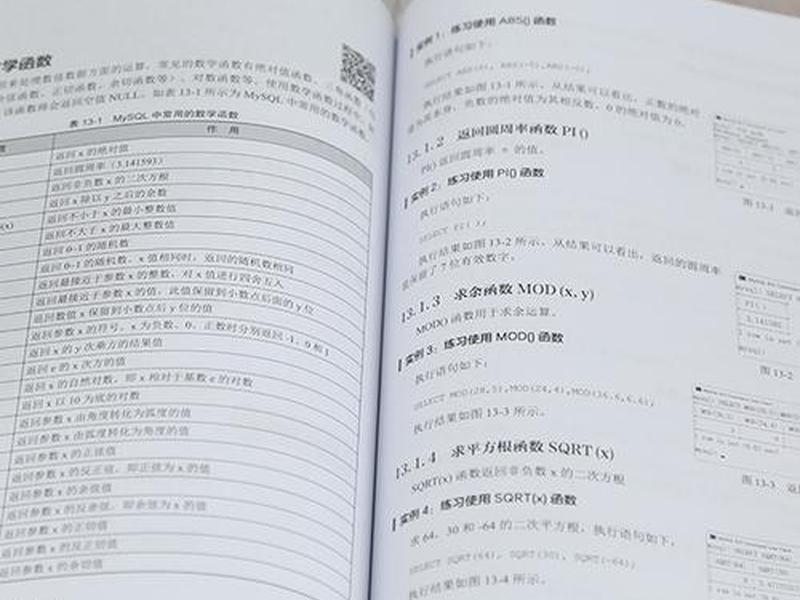 学函数
来处理数值数据方面的运算，常见的数学函数有绝对值函数、三角函数
弦函数、正切函数、余切函数等）、对数函数等。使用数学函数过程中，
该函数将会返回空值 NULL。如表 13-1 所示为 MySQL 中常用的数学函数
表 13-1 MySQL 中常用的数学函数
作 用
返回 x 的绝对值
返回圆周率（3.141593）
返回非负数 x 的二次方根
返回 x 除以 y 之后的余数
返回不小于 x 的最小整数值
返回不大于 x 的最大整数值
返回 0~1 的随机数
返回 0~1 的随机数，x 值相同时，返回的随机数相同
返回最接近于参数 x 的整数，对 x 值进行四舍五入
返回最接近于参数 x 的值，此值保留到小数点后面的 y 位
返回数值 x 保留到小数点后 y 位的值
返回参数 x 的符号，x 为负数、0、正数时分别返回 -1、0 和 1
返回 x 的 y 次乘方的结果值
返回 e 的 x 次方的值
返回 x 的自然对数，即 x 相对于基数 e 的对数
返回 x 以 10 为底的对数
返回参数 x 由角度转化为弧度的值
返回参数 x 由弧度转化为角度的值
返回参数 x 的正弦值
返回参数 x 的反正弦，即正弦为 x 的值
返回参数 x 的余弦值
返回参数 x 的反余弦，即余弦为 x 的值
返回参数 x 的正切值
返回参数 x 的反正切值
返回参数 x 的余切值
实例 1：练习使用 ABS() 函数
执行语句如下：
执行结果如图 13-1 所示，从结果可以看出，正数的绝对
值为其本身，负数的绝对值为其相反数，0 的绝对值为 0。
13.1.2 返回圆周率函数 PI ()
PI() 返回圆周率 π 的值。
实例 2：练习使用 PI() 函数
执行语句如下：
SELECT PI();
执行结果如图 13-2 所示，从结果可以看出，返回的圆周率
值保留了 7 位有效数字。
13.1.3 求余函数 MOD (x, y)
MOD() 函数用于求余运算。
实例 3：练习使用 MOD() 函数
执行语句如下：
SELECT MOD(28,5),MOD(24,4),MOD(36.6,6.6);
执行结果如图 13-3 所示。
13.1.4 求平方根函数 SQRT (x)
SQRT(x) 函数返回非负数 x 的二次方根
实例 4：练习使用 SQRT(x) 函数
求 64、30 和 -64 的二次平方根，执行语句如下：
SELECT SQRT(64), SQRT(30), SQRT(-64);
执行结果如图 13-4 所示。
图 13-1 返
图 13-2
图 13-3 返